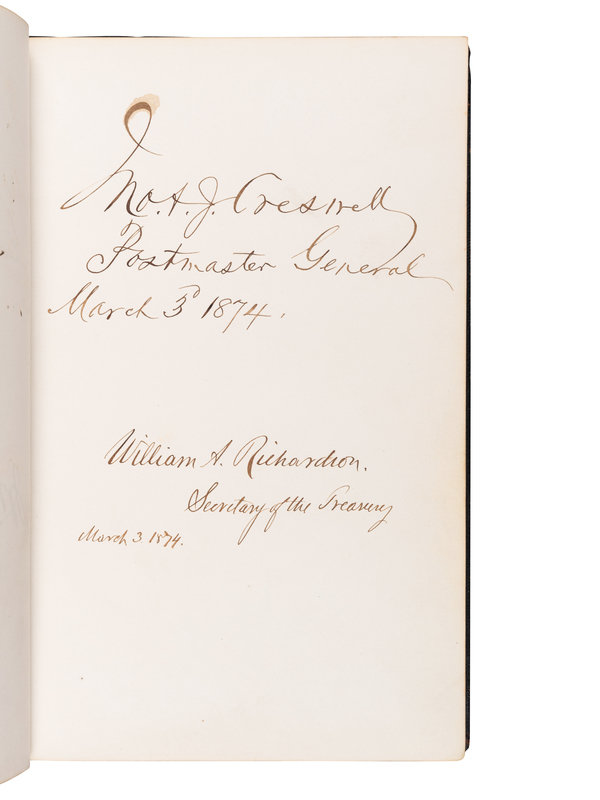 Jno. A. J. Creswell
Postmaster General
March 3d 1874.
William A. Richardson.
Secretary of the Treasury
March 3. 1874.